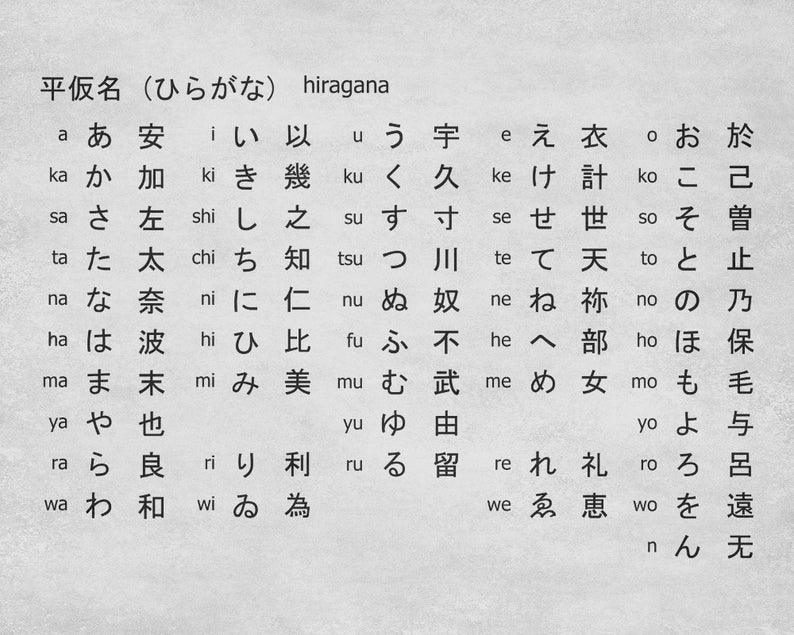 平仮名（ひらがな） hiragana
a あ 安 i い 以 u う 宇 e え 衣 o お 於
ka か 加 ki き 幾 ku く 久 ke け 計 ko こ 己
sa さ 左 shi し 之 su す 寸 se せ 世 so そ 曽
ta た 太 chi ち 知 tsu つ 川 te て 天 to と 止
na な 奈 ni に 仁 nu ぬ 奴 ne ね 祢 no の 乃
ha は 波 hi ひ 比 fu ふ 不 he へ 部 ho ほ 保
ma ま 末 mi み 美 mu む 武 me め 女 mo も 毛
ya や 也 yu ゆ 由 yo よ 与
ra ら 良 ri り 利 ru る 留 re れ 礼 ro ろ 呂
wa わ 和 wi ゐ 為 we ゑ 恵 wo を 遠
n ん 无